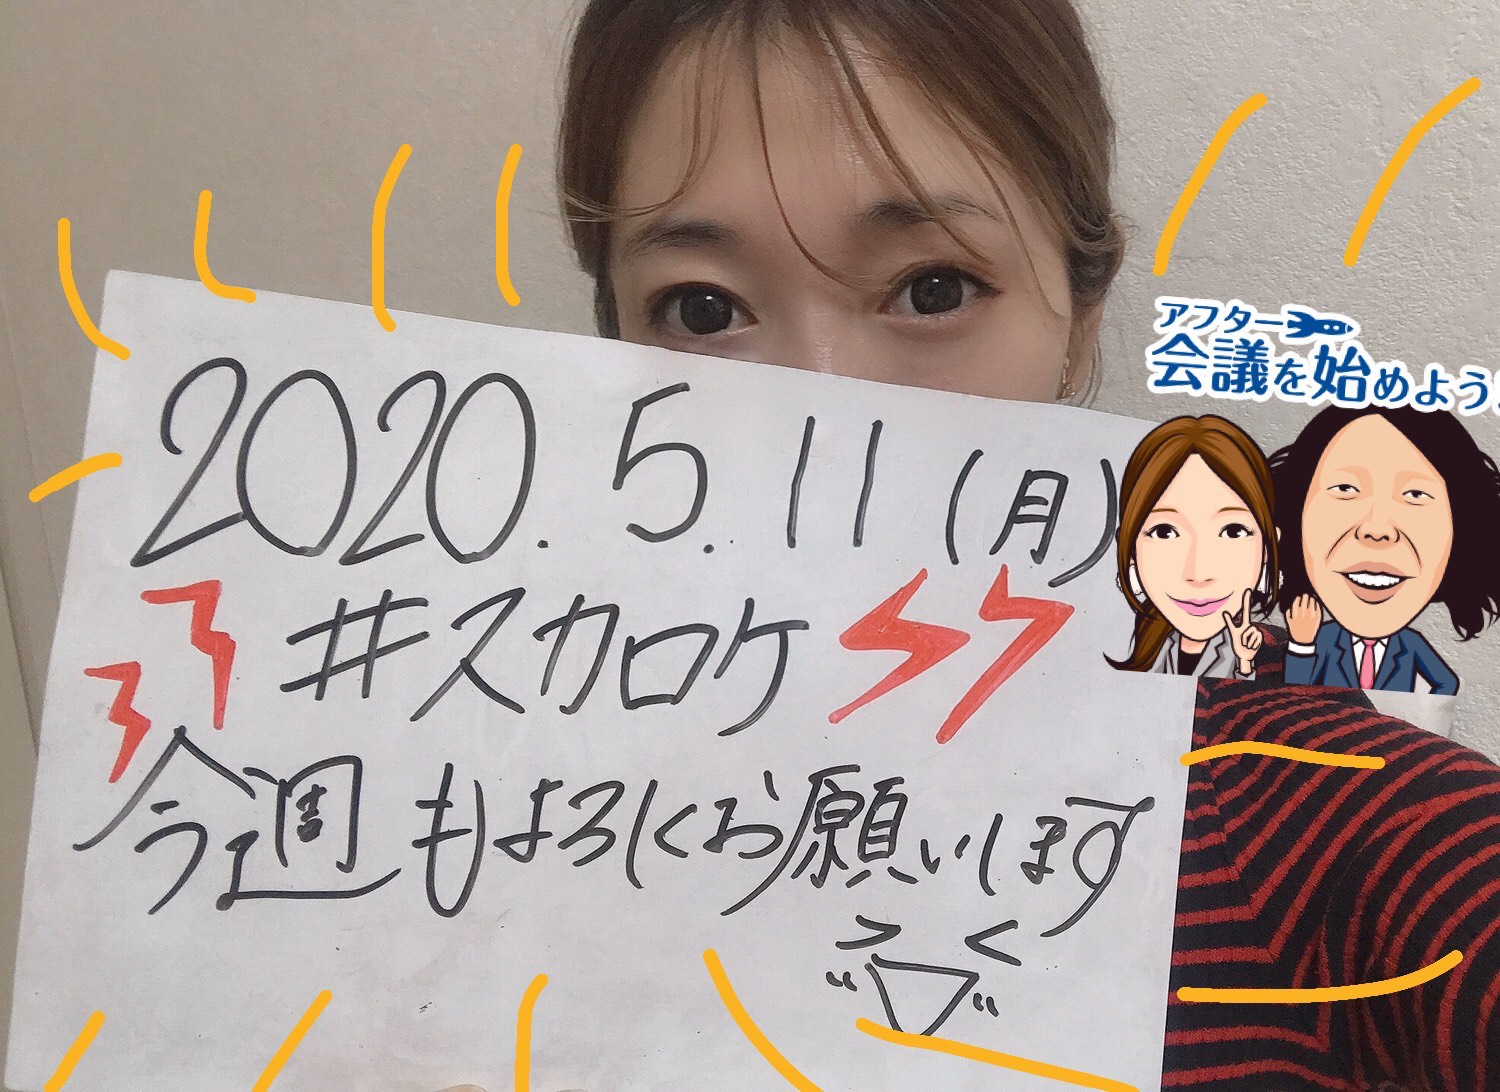 2020.5.11(月)
#スカロケ
今週もよろしくお願いします
アフター
会議を始めよう!